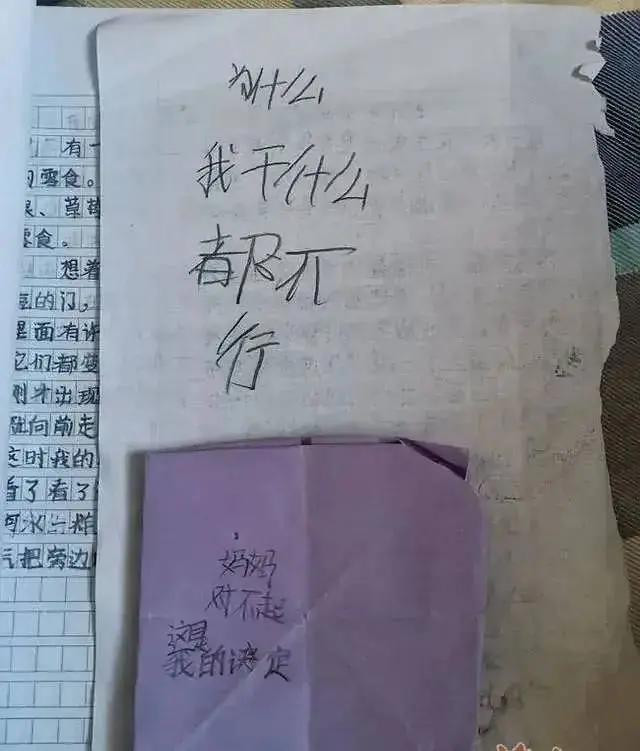 有一
零食。
、草莓
零食。
想着
的门，
里面有许
它们都变
刚才出现
向前走
这时我的
看了看了
河水
把旁边
为什么
我干什么
都不
行
妈妈
对不起
这是
我的决定